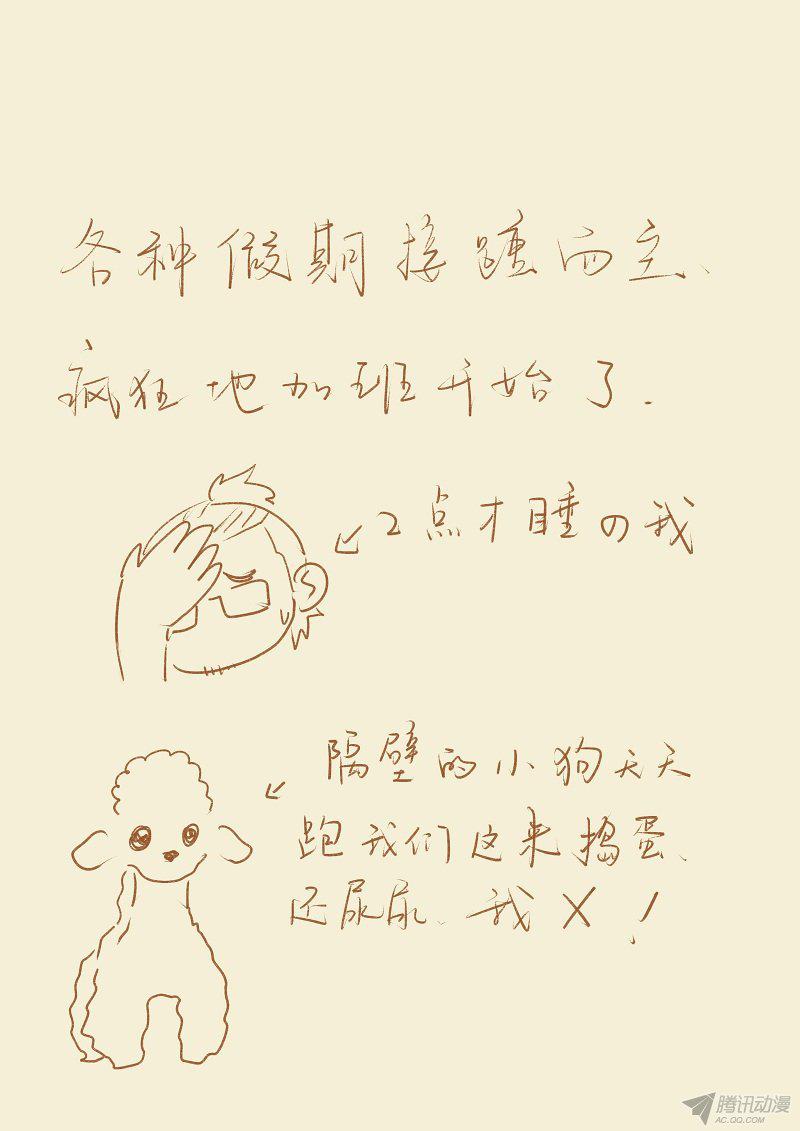 各种假期接踵而至、
疯狂地加班开始了.
2点才睡の我
隔壁的小狗天天
跑我们这来捣蛋、
还尿尿、我X!
腾讯动漫
AC.QQ.COM